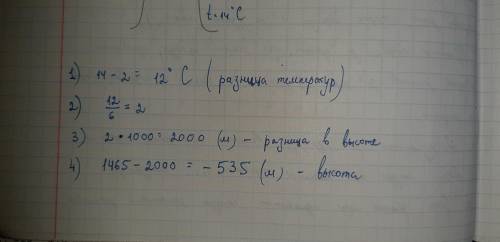 t=14°C
1) 14 - 2 = 12° C (разница температур)
2) 12/6 = 2
3) 2 * 1000 = 2000 (м) - разница в высоте
4) 1465 - 2000 = - 535 (м) - высота